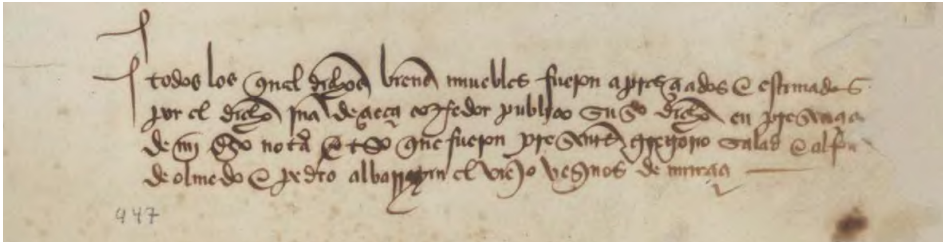 todos los quel dichos bienes muebles fueron apresçados e estimados
por el dicho jua de corredor publico suso dicho en presençia
de mi dicho nota e tso que fueron presentes gregorio e alfon
de olmedo e pedro albarrazin el viejo vesinos de murçia
447